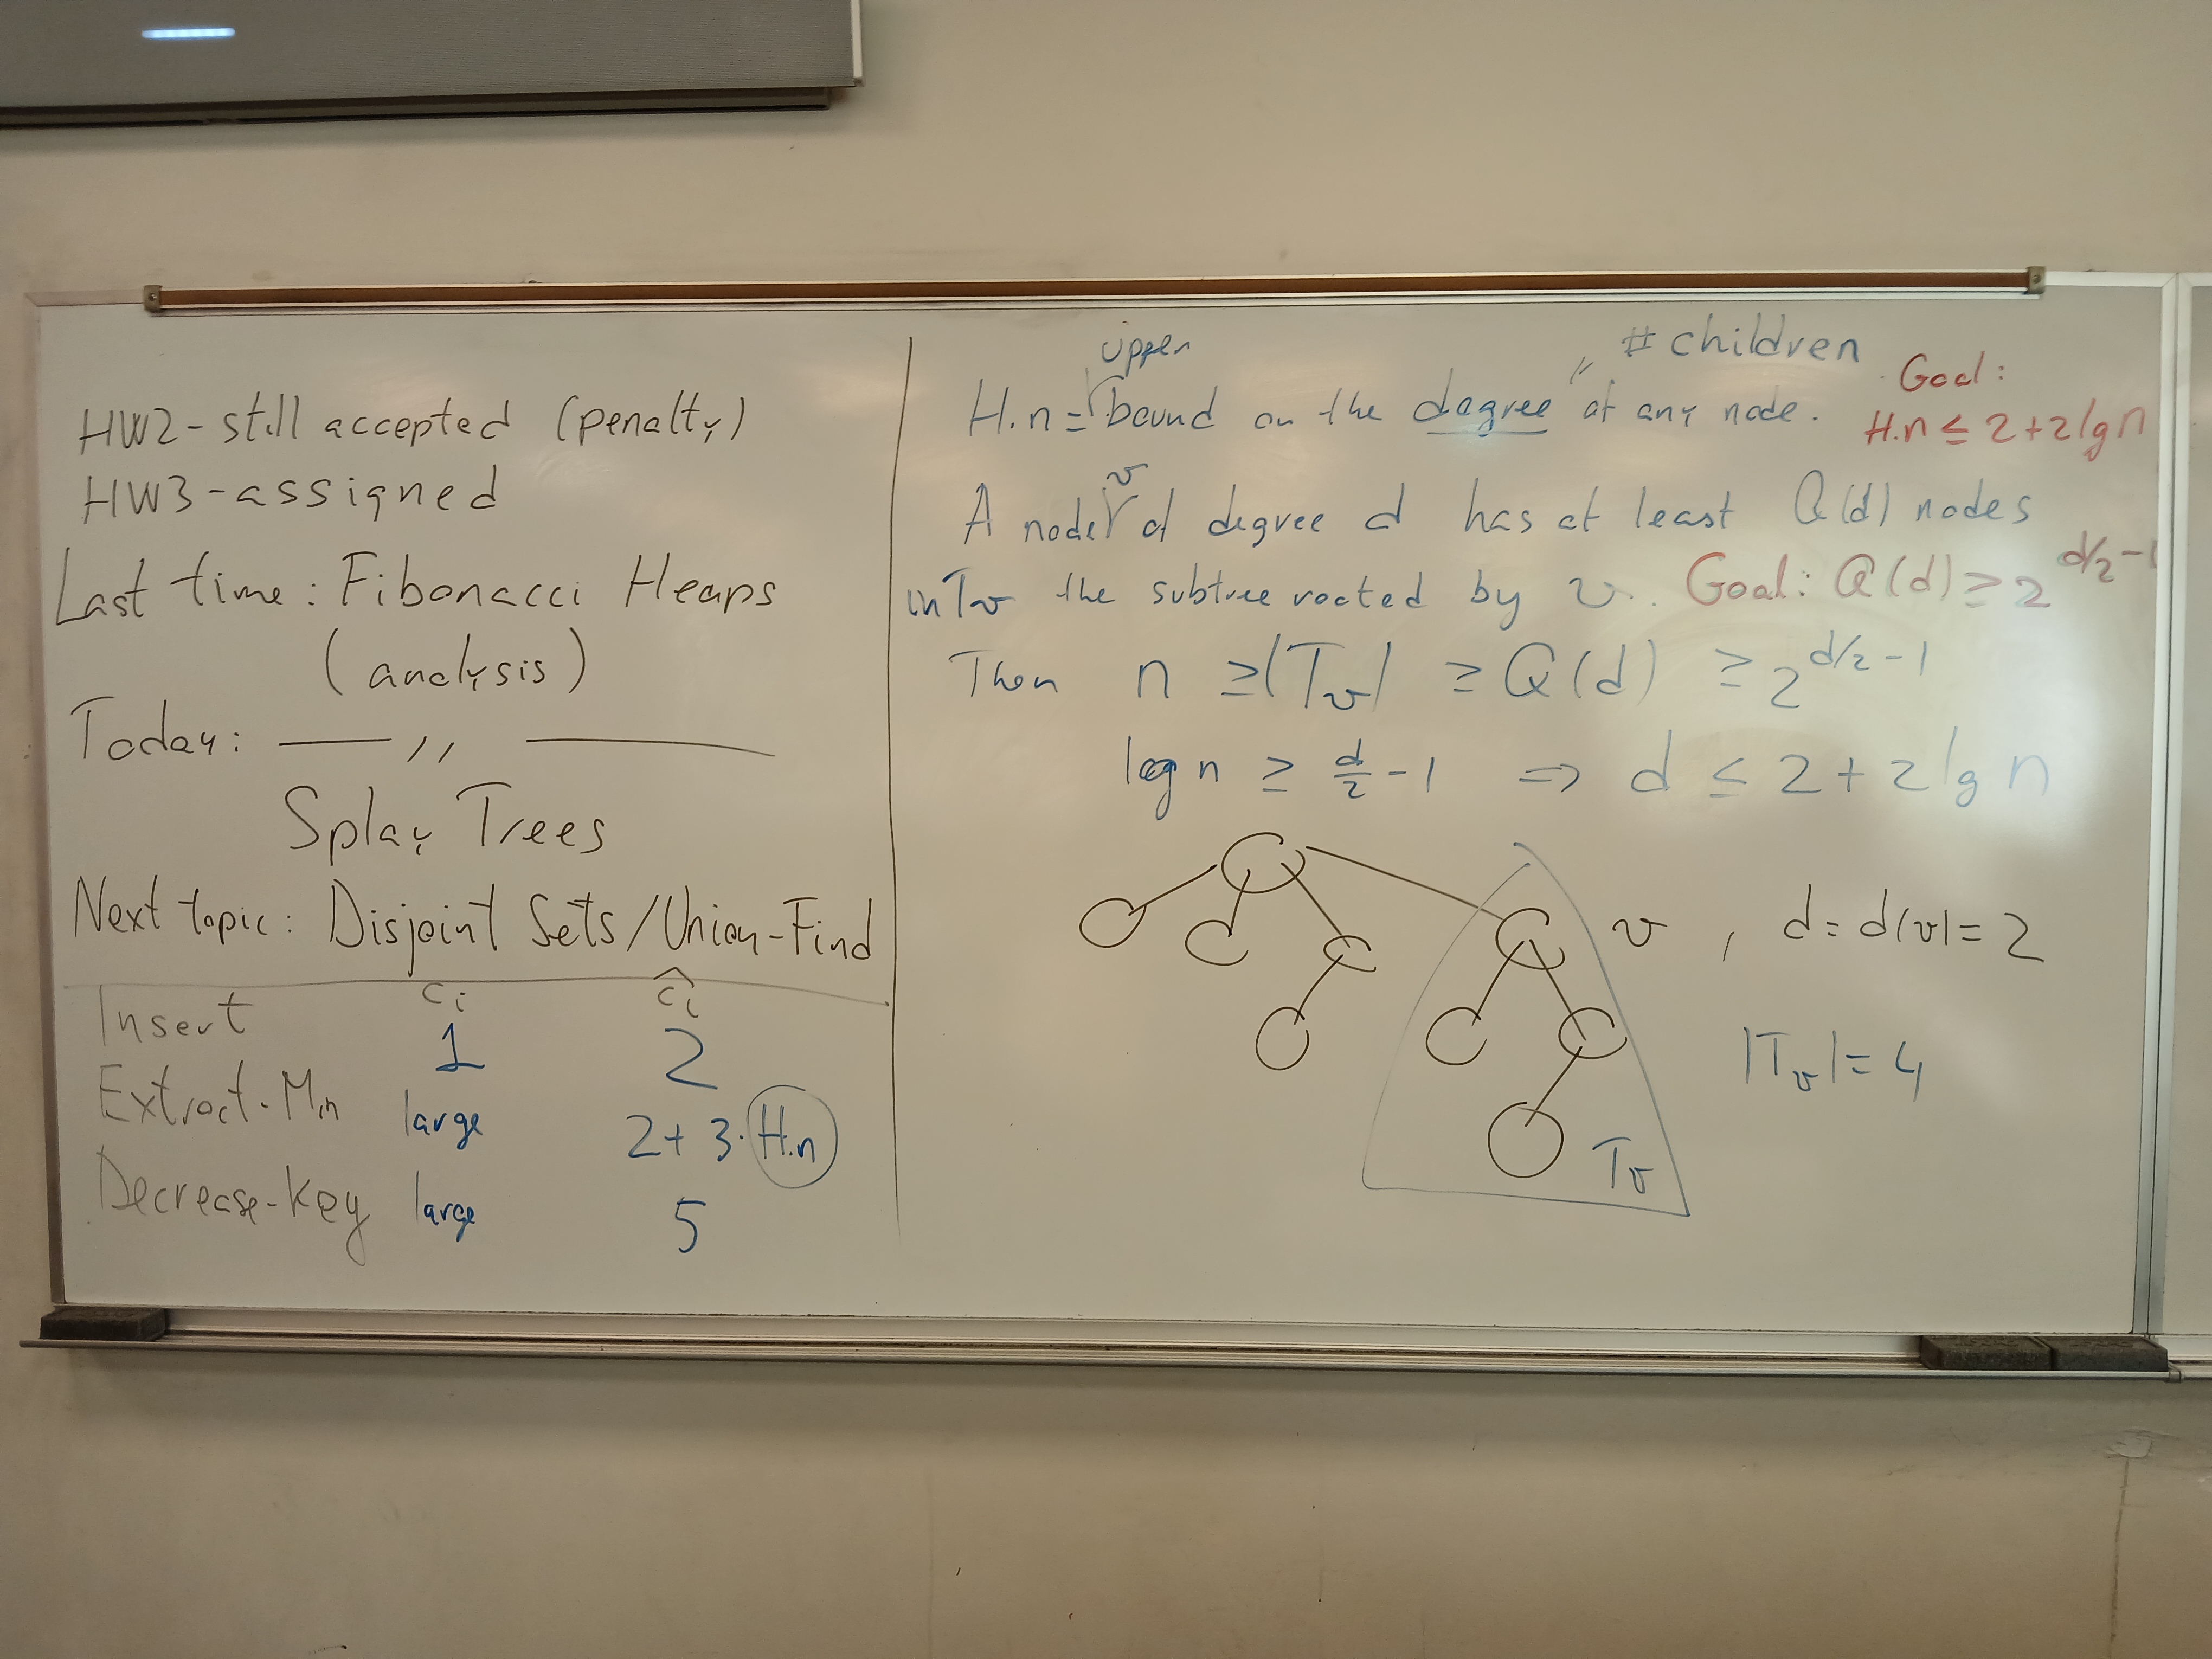 HW2 - still accepted (penalty)
HW3 - assigned
Last time: Fibonacci Heaps
(analysis)
Today: —— ,, ——
Splay Trees
Next topic: Disjoint Sets / Union-Find
c_i ĉ_i
Insert 1 2
Extract-Min large 2 + 3·H.n
Decrease-Key large 5
upper " # children
H.n = bound on the degree of any node.
Goal:
H.n ≤ 2 + 2 lg n
v
A node of degree d has at least Q(d) nodes
in Tv the subtree rooted by v. Goal: Q(d) ≥ 2^{d/2 - 1}
Then n ≥ |Tv| ≥ Q(d) ≥ 2^{d/2 - 1}
log n ≥ d/2 - 1 ⇒ d ≤ 2 + 2 lg n
v , d = d(v) = 2
|Tv| = 4
Tv